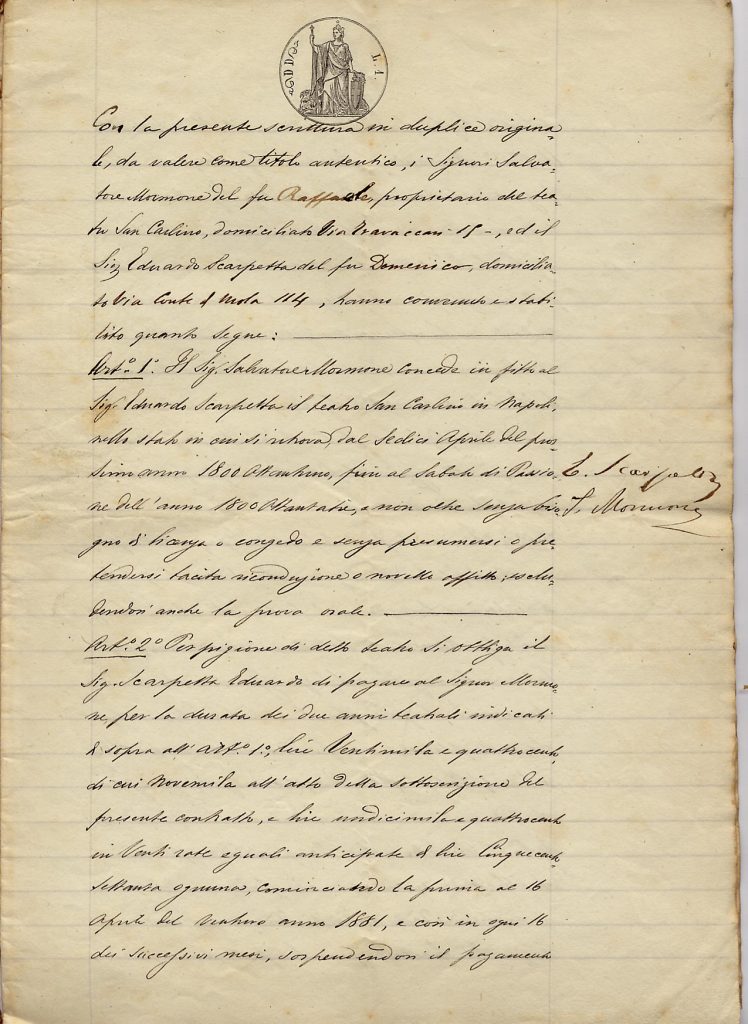 L. 1.
Con la presente scrittura in duplice origina-
le, da valere come titolo autentico, i Signori Salva-
tore Mormone del fu Raffaele, proprietario del tea-
tro San Carlino, domiciliato Via Travaccari 15 -, ed il
Sig. Eduardo Scarpetta del fu Domenico, domicilia-
to Via Conte di Mola 114, hanno convenuto e stabi-
lito quanto segue:
Art.o 1.o Il Sig. Salvatore Mormone concede in fitto al
Sig. Eduardo Scarpetta il teatro San Carlino in Napoli,
nello stato in cui si ritrova, dal Sedici Aprile del pros-
simo anno 1800 Ottantuno, fin al Sabato di Passio-
E. Scarpetta
ne dell'anno 1800 Ottantatre, e non oltre senza biso-
S. Mormone
gno di licenza o congedo e senza presumersi o pre-
tendersi tacita riconduzione o novello affitto, esclu-
dendosi anche la prova orale.
Art.o 2.o Per pigione di detto teatro si obbliga il
Sig. Scarpetta Eduardo di pagare al Signor Mormo-
ne per la durata dei due anni teatrali indicati
di sopra all'art.o 1.o, lire Ventimila e quattrocento,
di cui Novemila all'atto della sottoscrizione del
presente contratto, e lire undicimila e quattrocento
in Venti rate eguali anticipate di lire Cinquecento
settanta ognuna, cominciando la prima al 16
Aprile del venturo anno 1881, e così in ogni 16
dei successivi mesi, sospendendosi il pagamento